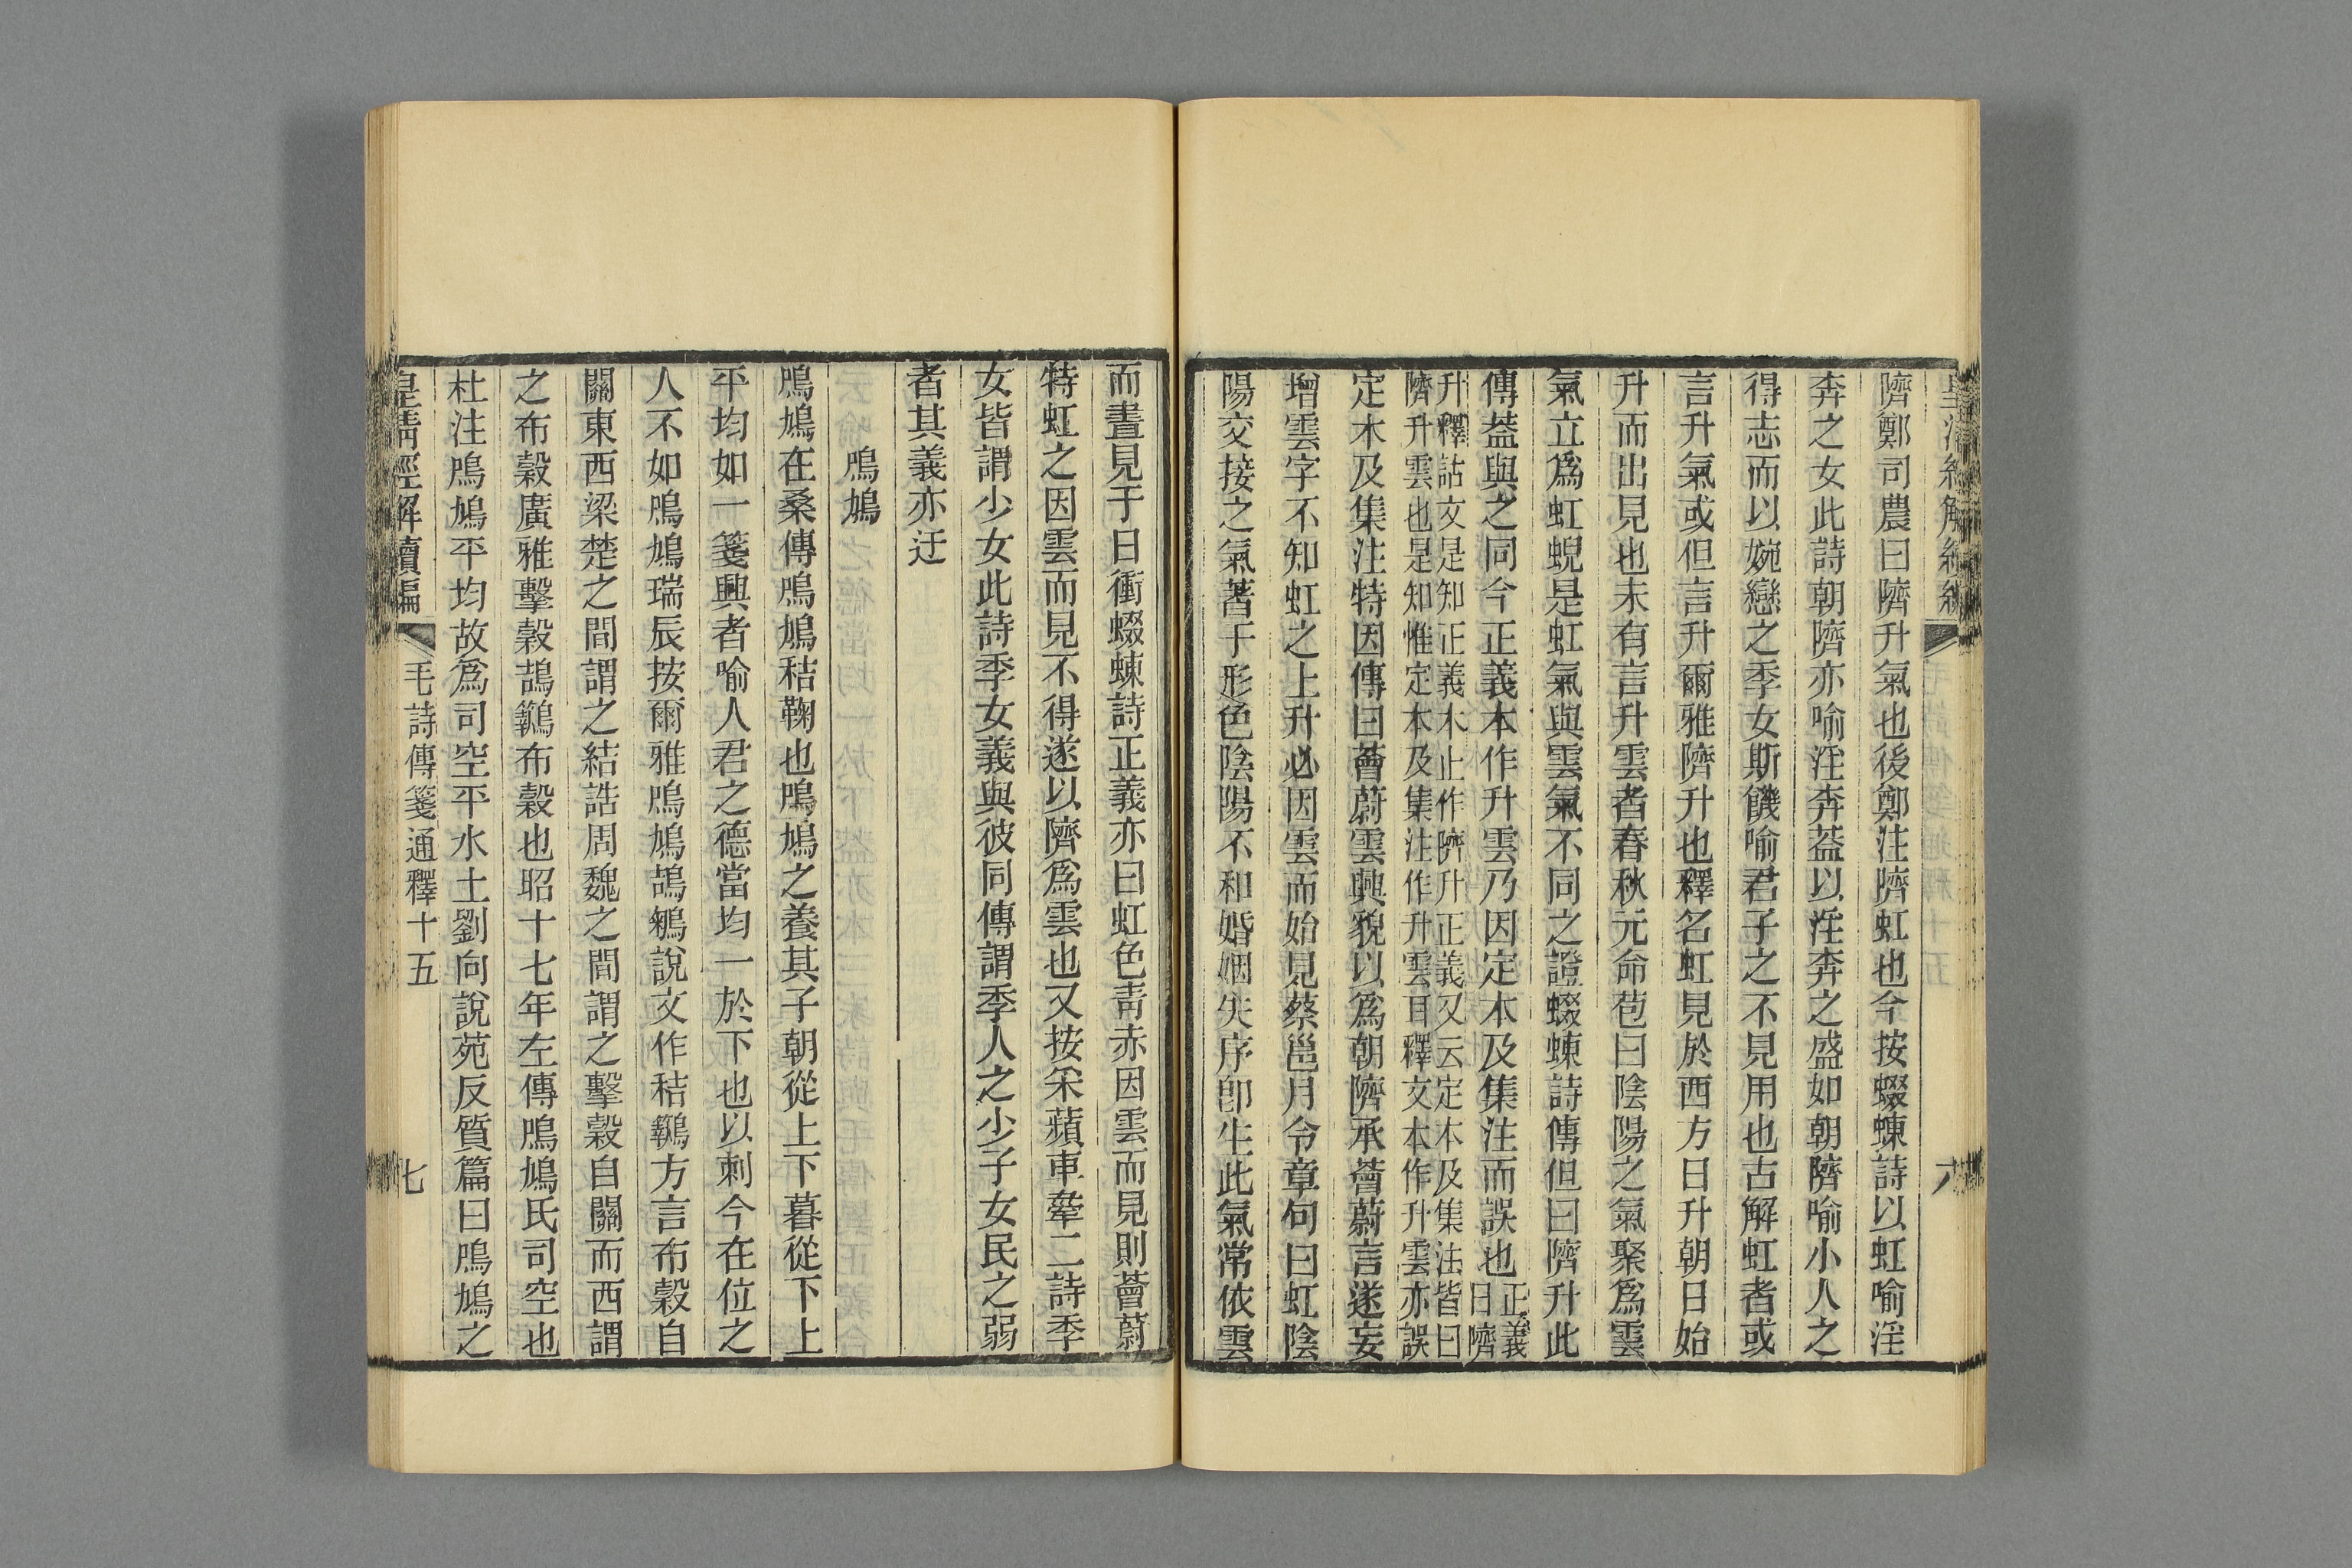 隮鄭司農曰隮升氣也後鄭注隮虹也今按蝃蝀詩以虹喻淫
奔之女此詩朝隮亦喻淫奔葢以淫奔之盛如朝隮喻小人之
得志而以婉戀之季女斯饑喻君子之不見用也古解虹者或
言升氣或但言升爾雅隮升也釋名虹見於西方曰升朝日始
升而出見也未有言升雲者春秋元命苞曰陰陽之氣聚爲雲
氣立爲虹蜺是虹氣與雲氣不同之證蝃蝀詩傳但曰隮升此
傳葢與之同今正義本作升雲乃因定本及集注而誤也正義曰隮
升釋詁文是知正義本止作隮升正義又云定本及集注皆曰
隮升雲也是知惟定本及集注作升雲耳釋文本作升雲亦誤
定本及集注特因傳曰薈蔚雲興貌以爲朝隮承薈蔚言遂妄
增雲字不知虹之上升必因雲而始見蔡邕月令章句曰虹陰
陽交接之氣著于形色陰陽不和婚姻失序卽生此氣常依雲
而晝見于日衝蝃蝀詩正義亦曰虹色靑赤因雲而見則薈蔚
特虹之因雲而見不得遂以隮爲雲也又按采蘋車舝二詩季
女皆謂少女此詩季女義與彼同傳謂季人之少子女民之弱
者其義亦迂
鳲鳩
鳲鳩在桑傳鳲鳩秸鞠也鳲鳩之養其子朝從上下暮從下上
平均如一箋興者喻人君之德當均一於下也以刺今在位之
人不如鳲鳩瑞辰按爾雅鳲鳩鴶鵴說文作秸鶷方言布穀自
關東西梁楚之間謂之結誥周魏之間謂之擊穀自關而西謂
之布穀廣雅擊穀鴶鵴布穀也昭十七年左傳鳲鳩氏司空也
杜注鳲鳩平均故爲司空平水土劉向說苑反質篇曰鳲鳩之
皇淸經解續編
毛詩傳箋通釋十五
七